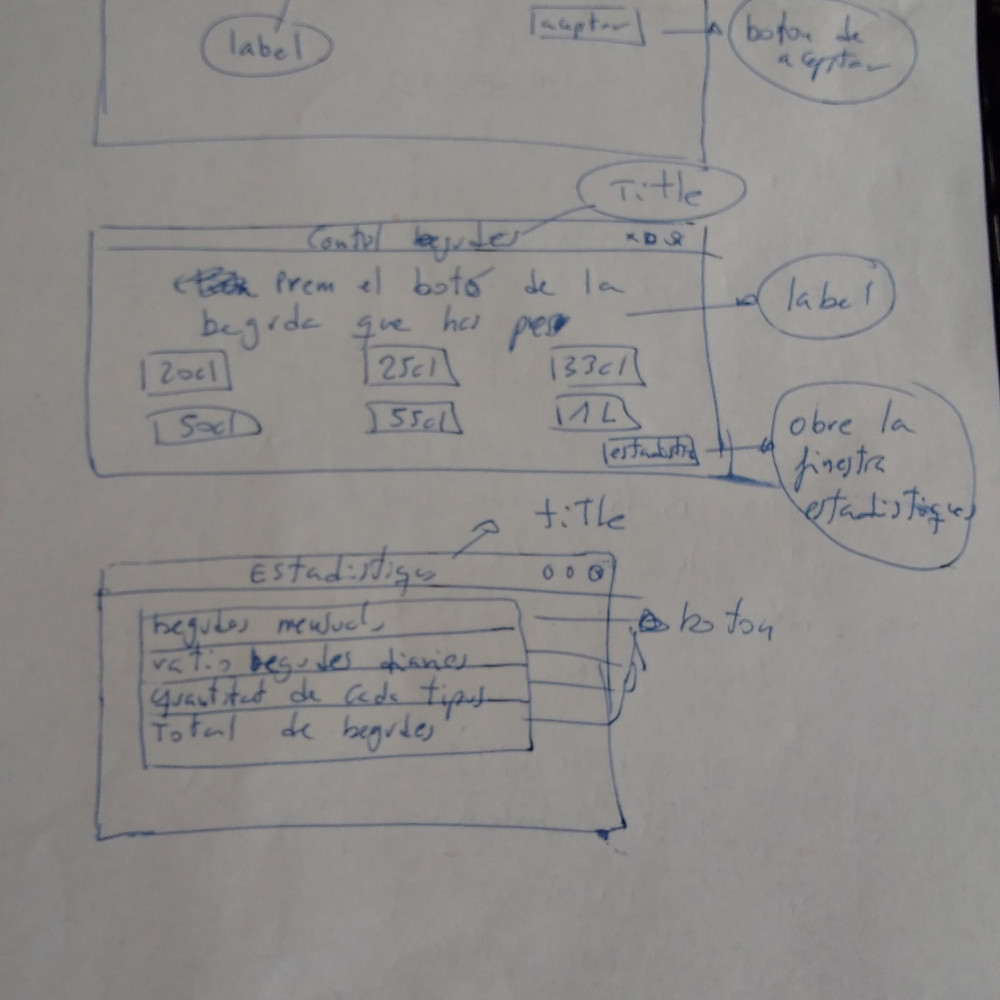 label
aceptar
boton de
aceptar
Title
Control begudes
Prem el botó de la
beguda que has pres
label
20cl
25cl
33cl
50cl
55cl
1L
estadistiq
obre la
finestra
estadistiques
title
Estadistiqes
begudes mensuals
ratio begudes diaries
quantitat de cada tipus
Total de begudes
boton